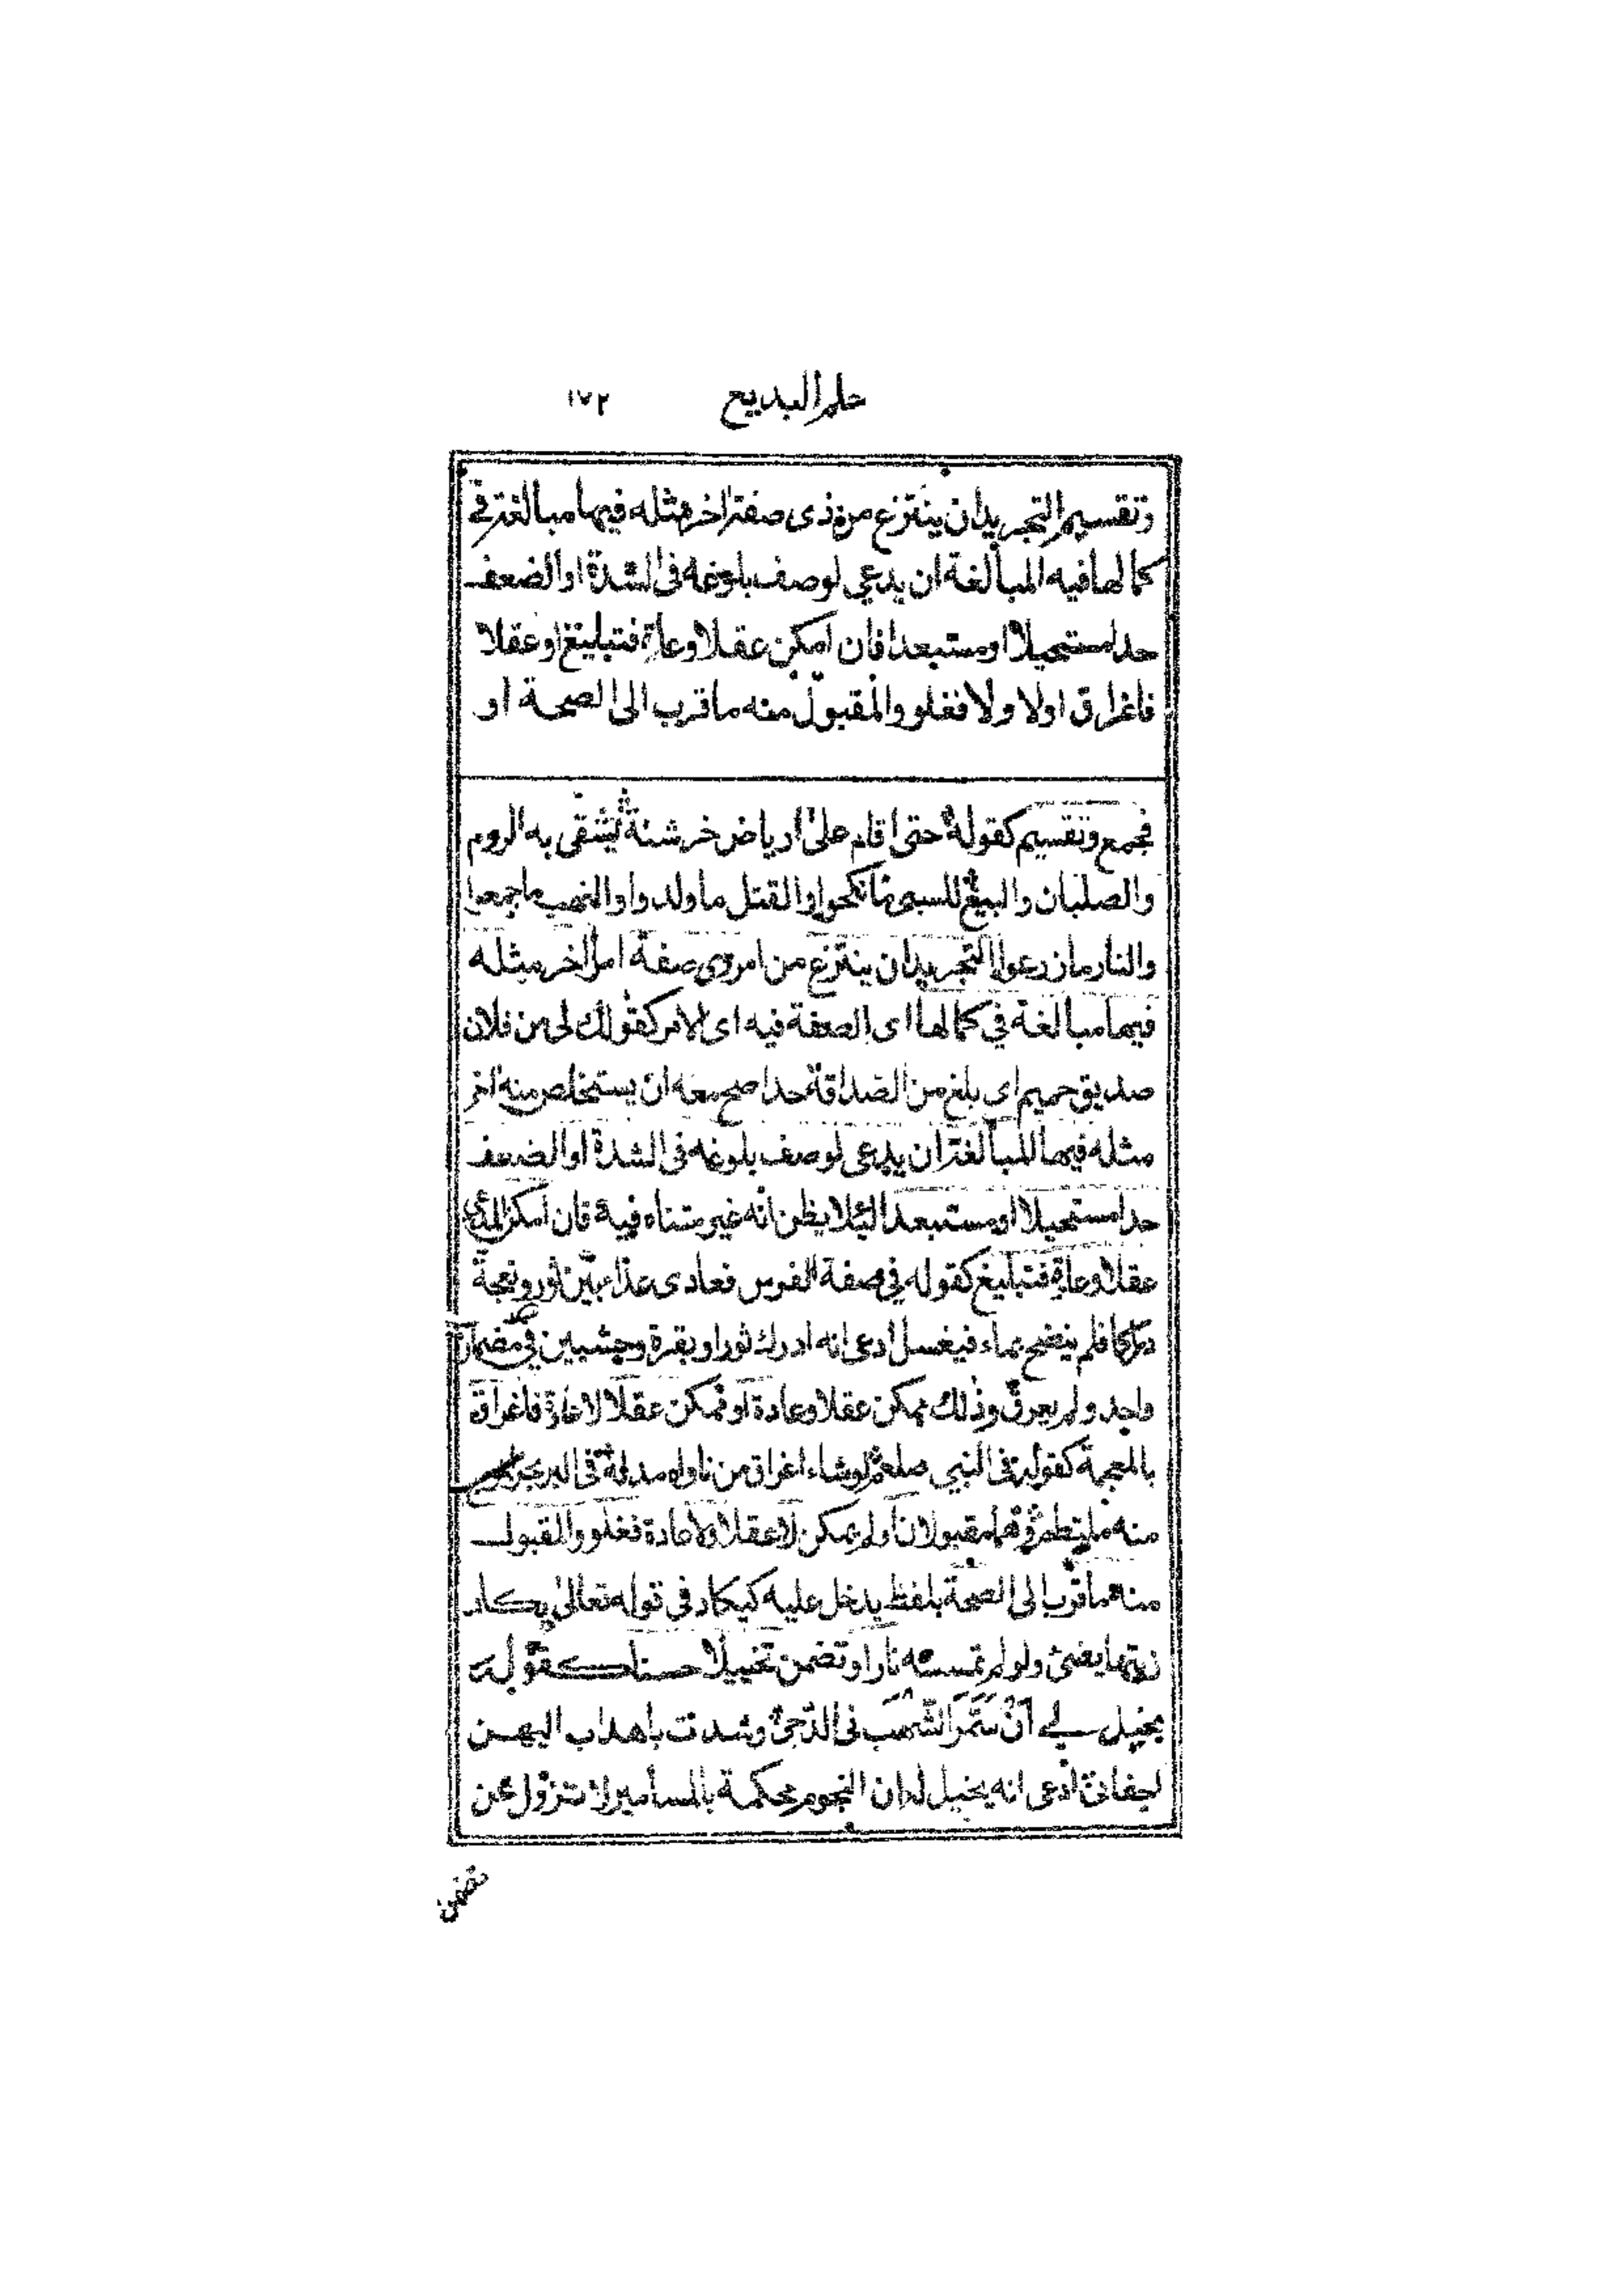 علم البديع ١٧٢
وتقسيم التجريد ان ينتزع من ذى صفة اخر مثله فيها مبالغة في
كمالها فيه المبالغة ان يدعي لوصف بلوغه فى الشدة او الضعف
حدا مستحيلا او مستبعدا فان امكن عقلا وعادة فتبليغ او عقلا
فاغراق او لا ولا فغلو والمقبول منه ما قرب الى الصحة او
فجمع وتقسيم كقوله حتى اقام على ارباض خرشنة تشقى به الروم
والصلبان والبيع للسبى ما نكحوا والقتل ما ولدوا والنهب ما جمعوا
والنار ما زرعوا التجريد ان ينتزع من امر ذى صفة امر اخر مثله
فيها مبالغة في كمالها اى الصفة فيه اى الامر كقولك لى من فلان
صديق حميم اى بلغ من الصداقة حدا صح معه ان يستخلص منه اخر
مثله فيها المبالغة ان يدعى لوصف بلوغه فى الشدة او الضعف
حدا مستحيلا او مستبعدا لئلا يظن انه غير متناه فيه فان امكن المدعى
عقلا وعادة فتبليغ كقوله في صفة الفرس فعادى عداء بين ثور ونعجة
دراكا فلم ينضح بماء فيغسل ادعى انه ادرك ثورا وبقرة وحشيين في مضمار
واحد ولم يعرق وذلك ممكن عقلا وعادة او ممكن عقلا لا عادة فاغراق
بالمعجمة كقوله فى النبي صلعم لوشاء اغراق من ناواه مد له فى البر بحرا
منه ملتطم وهما مقبولان او لم يمكن لا عقلا ولا عادة فغلو والمقبول
منه ما قرب الى الصحة بلفظ يدخل عليه كيكاد فى قوله تعالى يكاد
زيتها يضئ ولو لم تمسسه نار او تضمن تخييلا حسنا كقوله
يخيل لي أن سمر الشهب فى الدجى وشدت باهداب اليهن
اجفانى ادعى انه يخيل له ان النجوم محكمة بالمسامير لا تزول عن